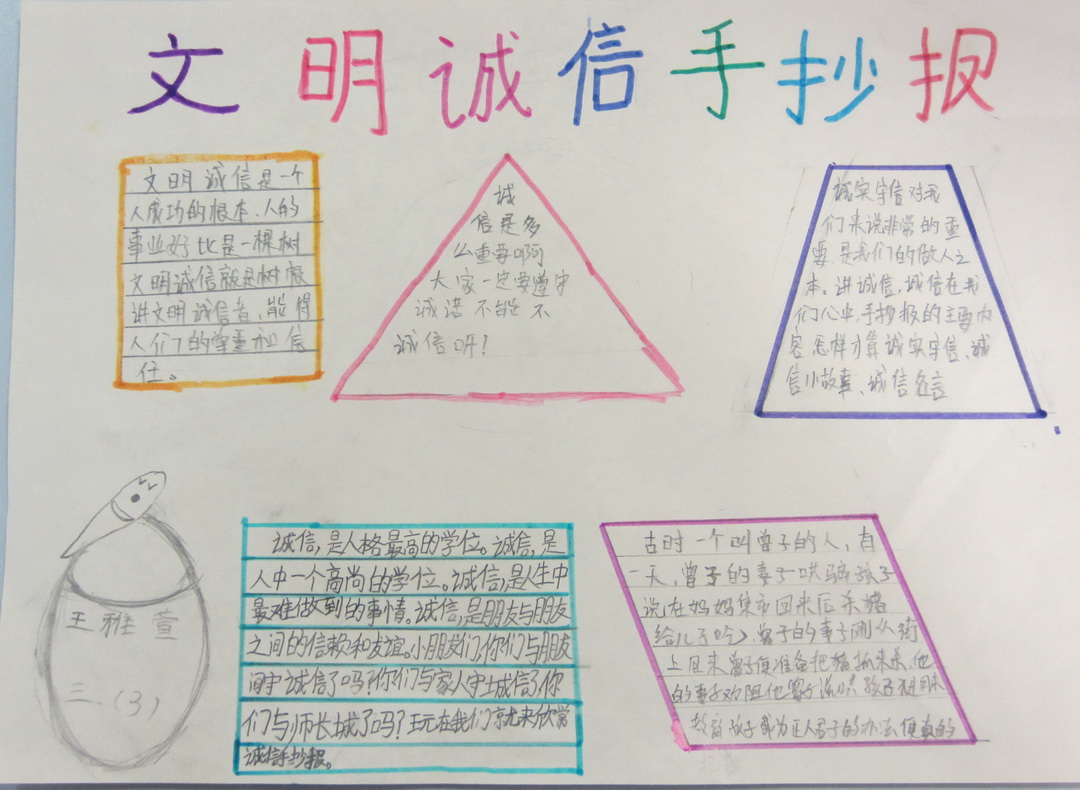 文明诚信手抄报
文明诚信是一个
人成功的根本、人的
事业好比是一棵树
文明诚信就是树根
讲文明诚信者,能得
人们的尊重和信
任。
诚
信是多
么重要啊
大家一定要遵守
诚诺不能不
诚信呀!
诚实守信对我
们来说非常的重
要是我们的做人之
本。讲诚信,诚信在我
们心中,手抄报的主要内
容怎样才算诚实守信、诚
信小故事、诚信名言
王雅萱
三.(3)
诚信,是人格最高的学位。诚信,是
人中一个高尚的学位。诚信,是人生中
最难做到的事情。诚信,是朋友与朋友
之间的信赖和友谊。小朋友们,你们与朋友
间守诚信了吗?你们与家人守上诚信了,你
们与师长城了吗?现在我们京尤来欣常
诚信手抄报。
古时一个叫曾子的人,有
一天,曾子的妻子哄骗孩子
说在妈妈集市回来后杀猪
给儿子吃,曾子的妻子刚从街
上回来曾子便准备把猪抓来杀,他
的妻子劝阻他曾子说
教育孩子